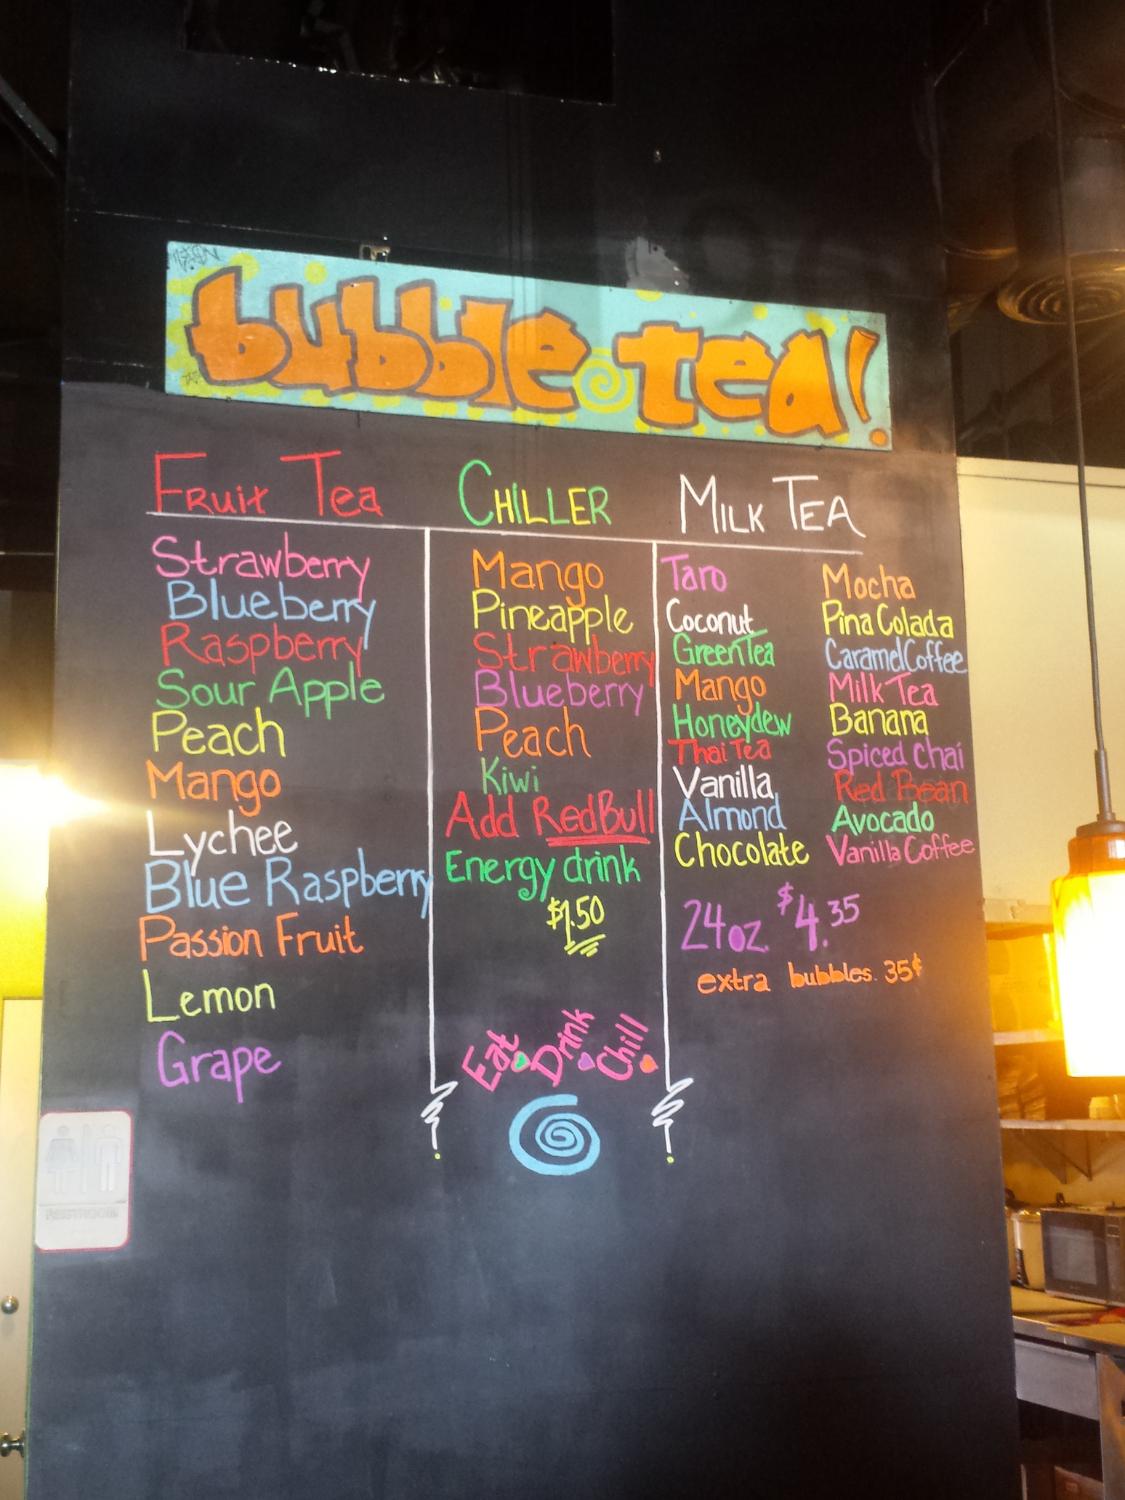 bubble tea!
Fruit Tea
Strawberry
Blueberry
Raspberry
Sour Apple
Peach
Mango
Lychee
Blue Raspberry
Passion Fruit
Lemon
Grape
Chiller
Mango
Pineapple
Strawberry
Blueberry
Peach
Kiwi
Add RedBull
Energy drink
$1.50
Eat Drink Chill
Milk Tea
Taro
Coconut
Green Tea
Mango
Honeydew
Thai Tea
Vanilla
Almond
Chocolate
Mocha
Pina Colada
Caramel Coffee
Milk Tea
Banana
Spiced Chai
Red Bean
Avocado
Vanilla Coffee
24oz. $4.35
extra bubbles. 35¢
RESTROOM